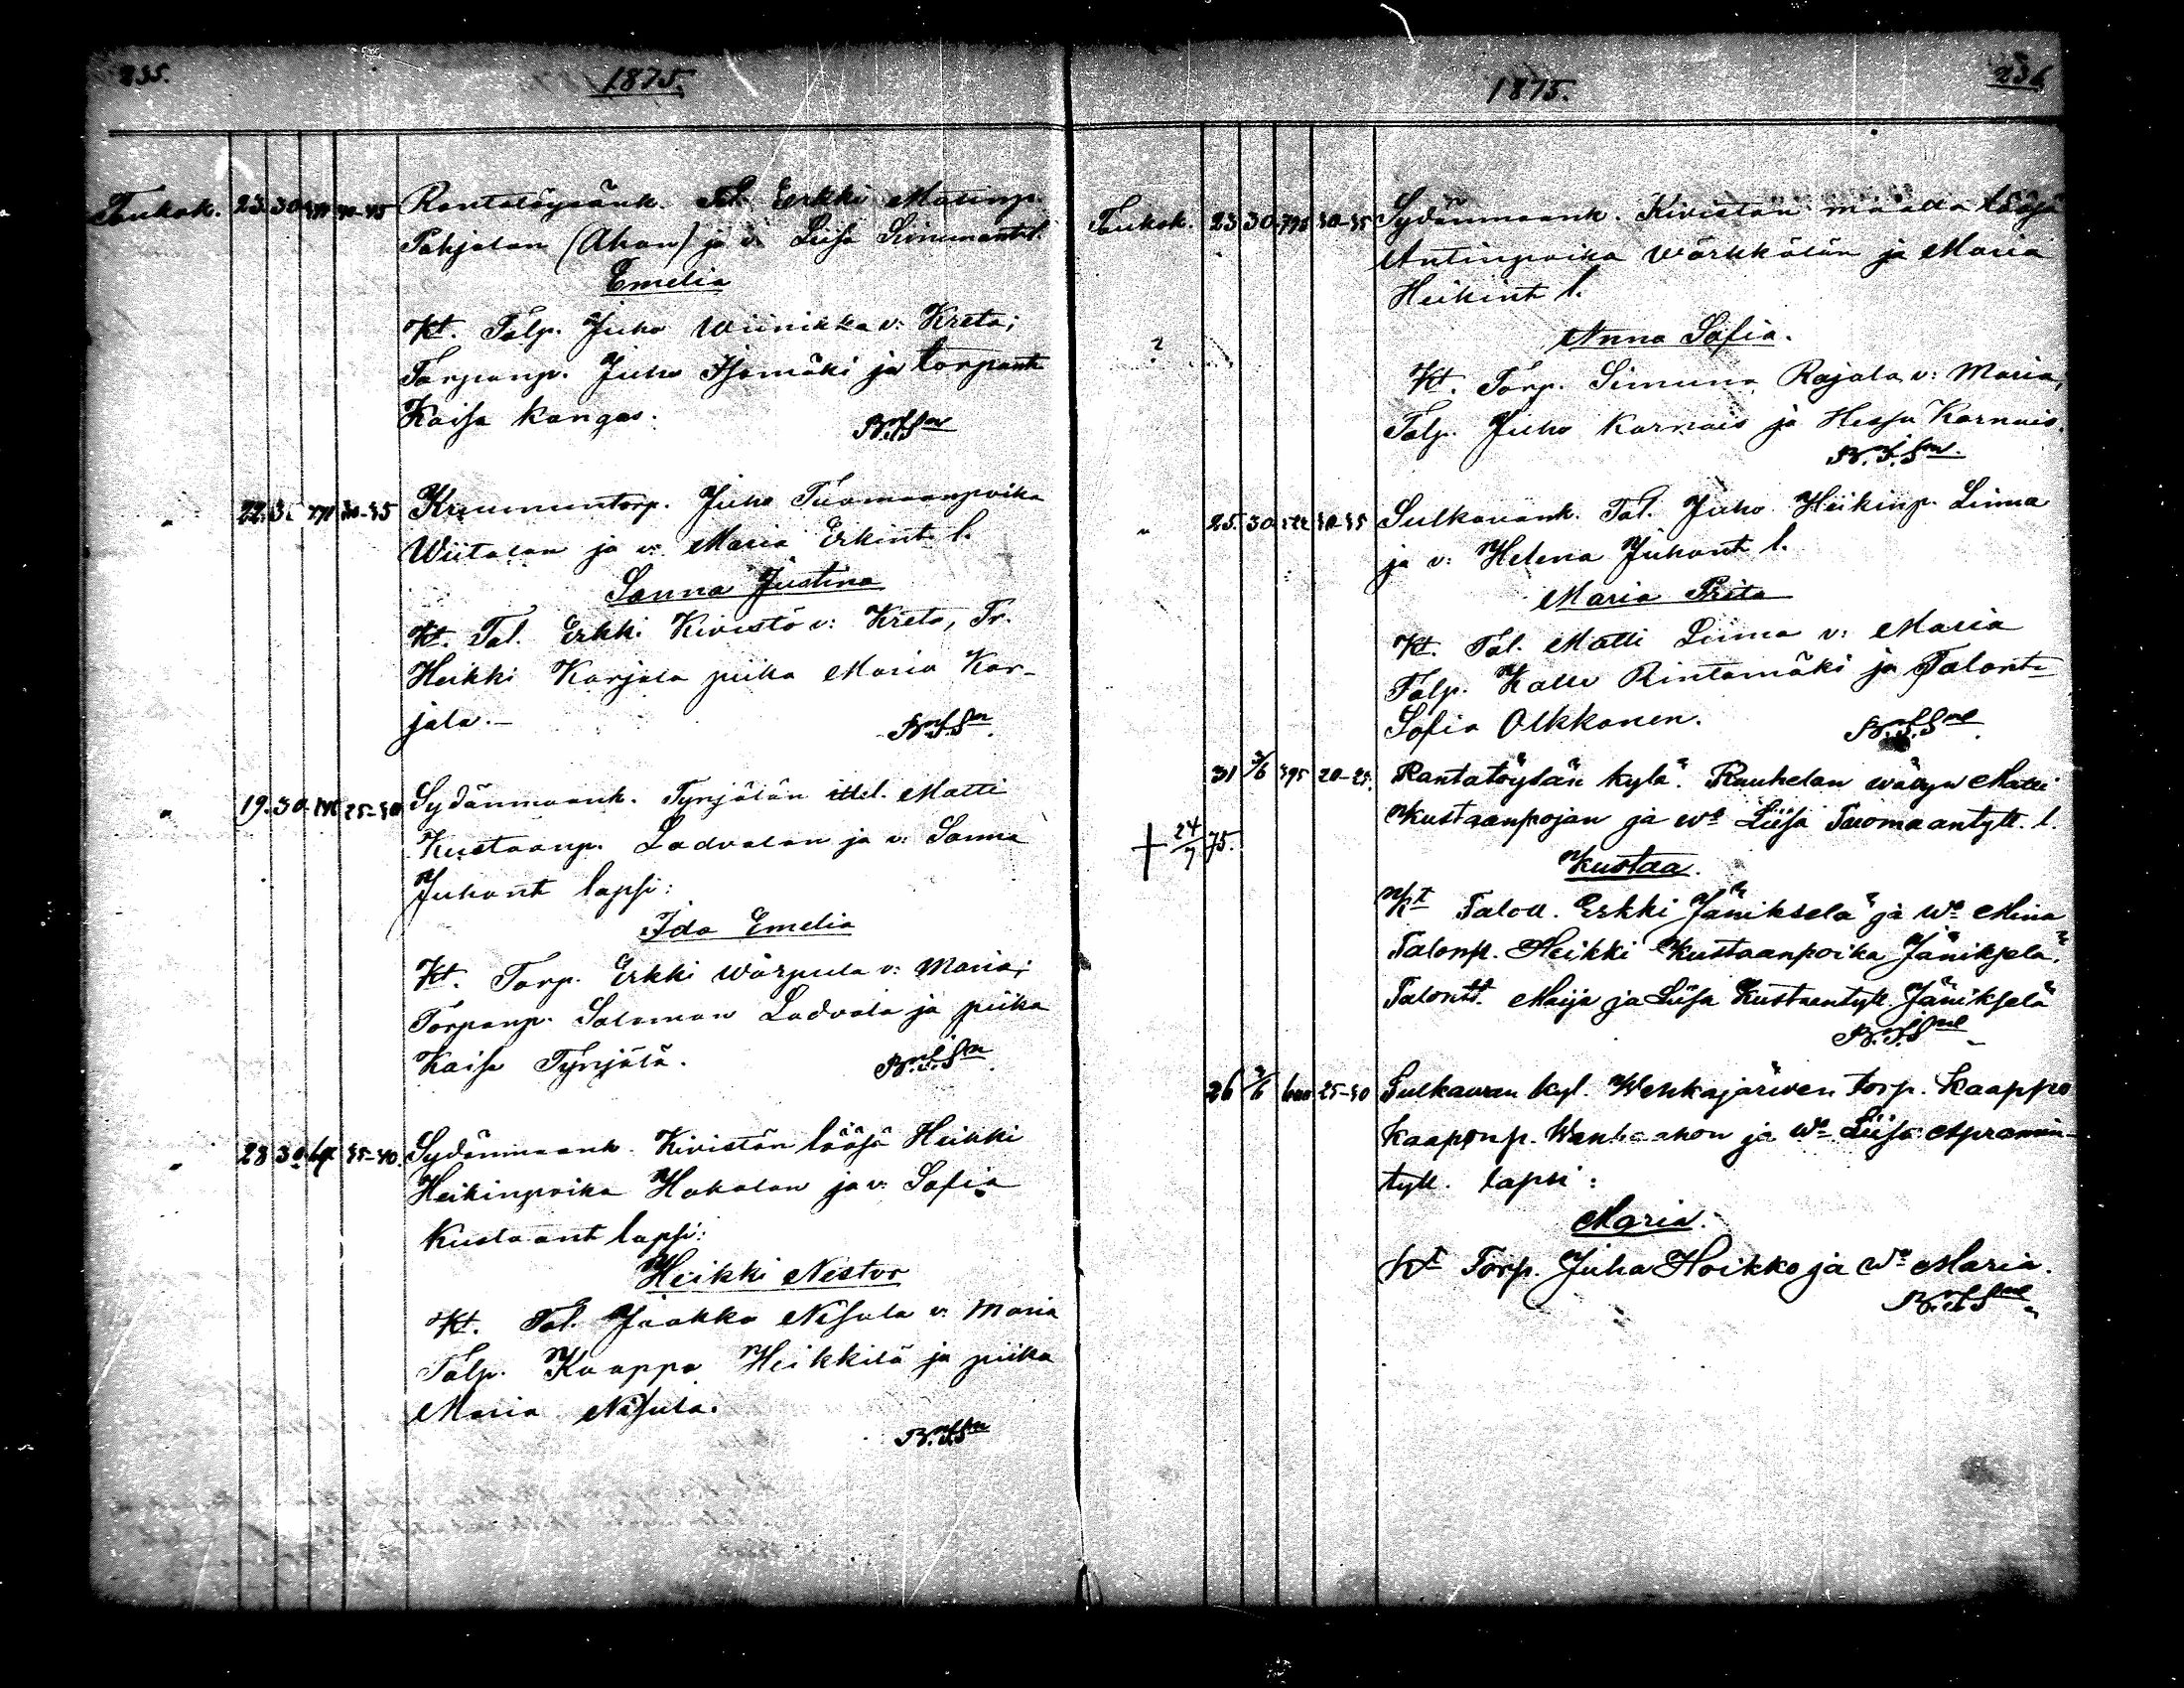 235.
1875.
Toukok. 23 30 40-45 Rantatöysänk. Tal. Erkki Matinp.
Pohjalan (Ahon) ja v: Liisa Simunant l.
Emelia
Kt. Talp. Juho Wiinikka v: Kreta;
Torpanp. Juho Isomäki ja torpant
Kaisa Kangas.
" 22. 30-35 Kruununtorp. Juho Tuomaanpoika
Wiitalan ja v: Maria Erkint l.
Sanna Justina
Kt. Tal. Erkki Kivistö v: Kreta, Tr.
Heikki Karjala piika Maria Kar-
jala.-
" 19. 30 25-30 Sydänmaank. Tynjälän ittel. Matti
Kustaanp. Ladvalan ja v: Sanna
Juhont lapsi:
Ida Emelia
Kt. Torp. Erkki Wärpula v: Maria;
Torpanp. Salomon Ladvala ja piika
Kaisa Tynjälä.
" 28 30 35-40. Sydänmaank. Kivistön lööjä Heikki
Heikinpoika Hakalan ja v: Sofia
Kustaant lapsi:
Heikki Nestor
Kt. Tal. Jaakko Nisula v: Maria
Talp. Kaappo Heikkilä ja piika
Maria Nisula.
1875.
236
Toukok. 23 30 30-35 Sydänmaank. Kivistön maalla lööjä
Antinpoika Wärkkälän ja Maria
Heikint l.
Anna Sofia.
?
Kt. Torp. Simuna Rajala v: Maria,
Talp. Juho Karnais ja Hessu Karnais.
" 25. 30 30-35 Sulkavank. Tal. Juho Heikinp. Liima
ja v: Helena Juhont l.
Maria Priita
Kt. Tal. Matti Liima v: Maria
Talp. Kalle Rintamäki ja Talont-
Sofia Olkkonen.
31 2/6 395 20-25. Rantatöysän kylä. Rauhalan wävyn Matti
Kustaanpojan ja wo Liisa Tuomaantytt. l.
+ 24/7 75.
Kustaa.
Kt Taloll. Erkki Jäniksela ja Wo Mina
Talonp. Heikki Kustaanpoika Jäniksela,
Talontt. Maija ja Liisa Kustaantytt. Jäniksela
26 2/6 600 25-30 Sulkawan kyl. Wehkajärwen torp. Kaappo
Kaaponp. Wanha ahon ja Wo Liisa Apramin-
tytt. lapsi:
Maria.
Kt Torp. Juha Hoikko ja Wo Maria.